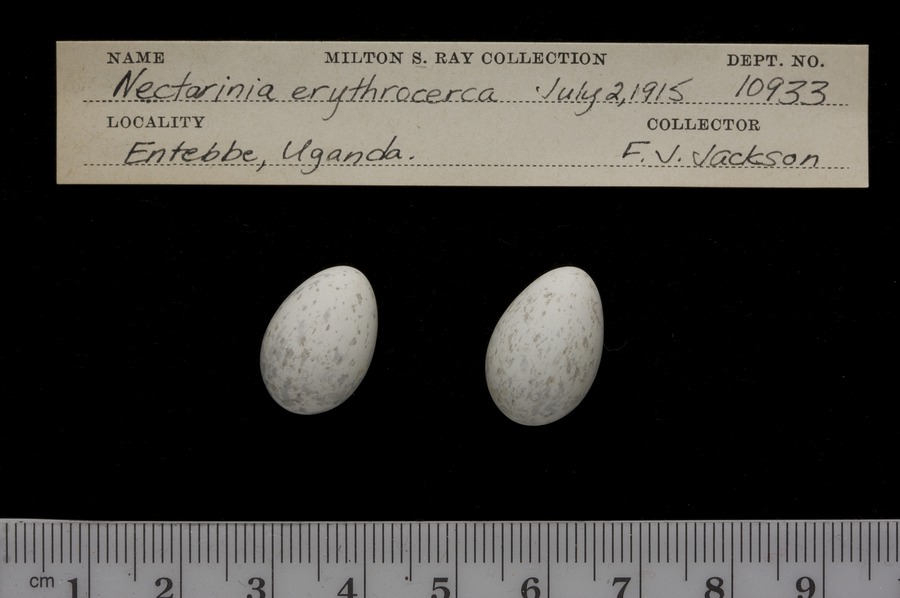 NAME MILTON S. RAY COLLECTION DEPT. NO.
Nectarinia erythrocerca July 2, 1915 10933
LOCALITY COLLECTOR
Entebbe, Uganda. F. J. Jackson
cm 1 2 3 4 5 6 7 8 9